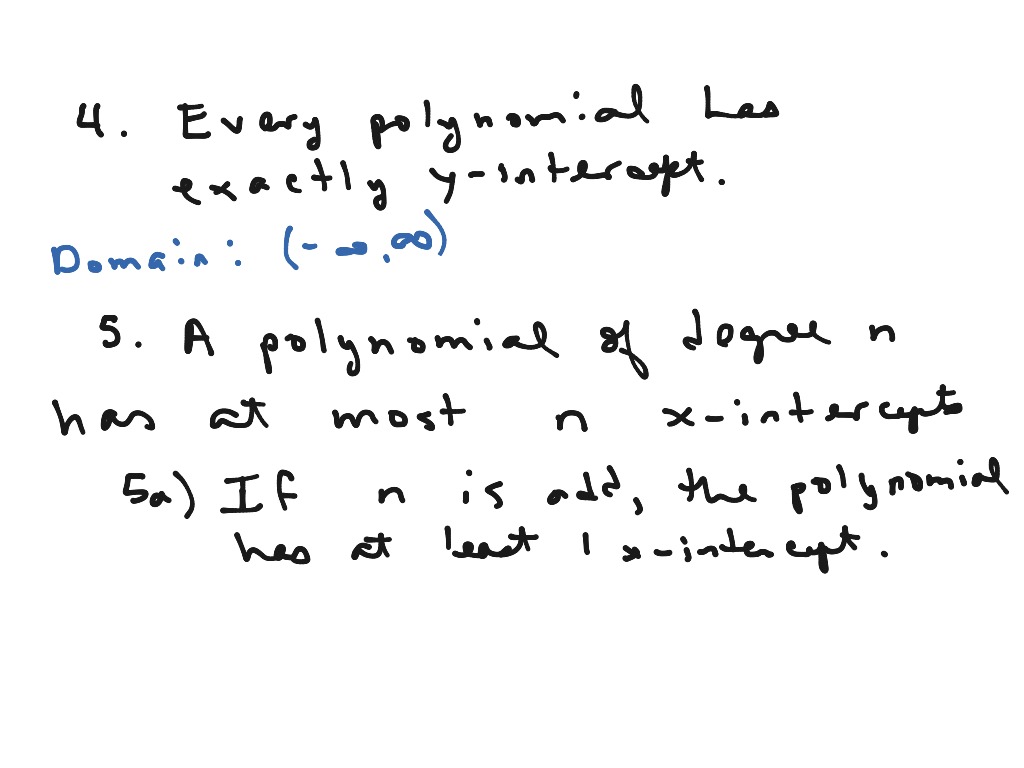 4. Every polynomial has
exactly y-intercept.
Domain: (-∞,∞)
5. A polynomial of degree n
has at most n x-intercepts
5a) If n is add, the polynomial
has at least 1 x-intercept.